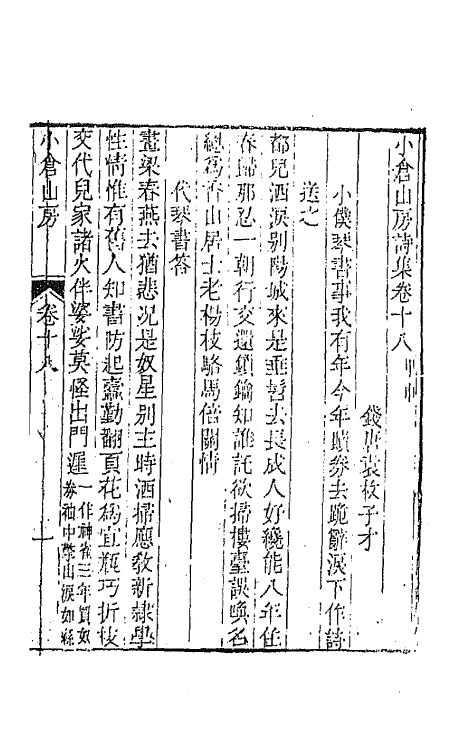 小倉山房詩集卷十八甲申
錢唐袁枚子才
小僕琴書事我有年今年贖券去跪辭淚下作詩
送之
都兒洒淚別陽城來是垂髫去長成人好纔能八年住
春歸那忍一朝行交還鎖鑰知誰託欲掃樓臺誤喚名
總爲香山居士老楊枝駱馬倍關情
代琴書答
畫梁春燕去猶悲況是奴星別主時洒掃應教新隷學
性情惟有舊人知書防起蠹勤翻頁花爲宜瓶巧折枝
交代兒家諸火伴婆娑莫怪出門遲一作神雀三年買奴
券袖中擎出淚如絲
小倉山房
卷十八
一